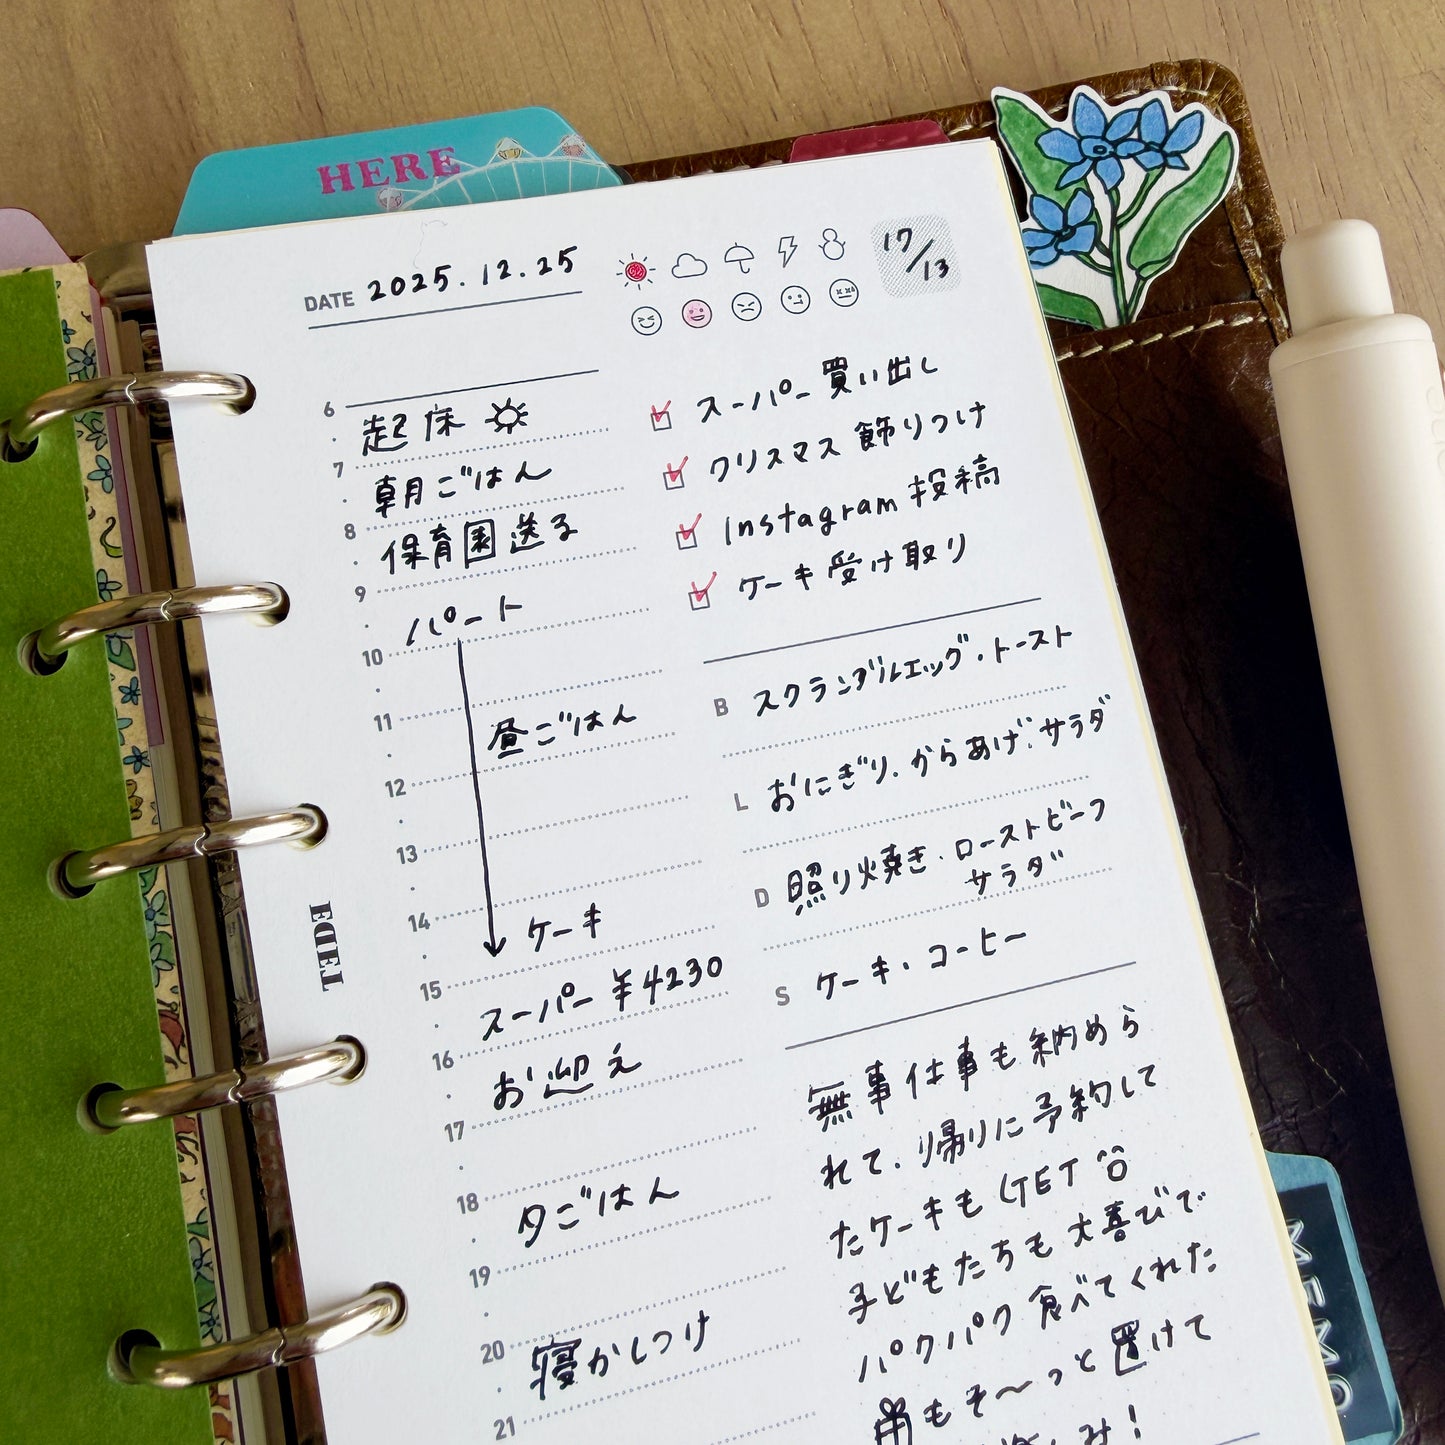 HERE
DATE 2025.12.25
17/13
6 起床
7 朝ごはん
8 保育園送る
9 パート
10
11 昼ごはん
12
13
14 ケーキ
15 スーパー ¥4230
16 お迎え
17
18 夕ごはん
19
20 寝かしつけ
21
スーパー買い出し
クリスマス飾りつけ
Instagram投稿
ケーキ受け取り
B スクランブルエッグ・トースト
L おにぎり・からあげ・サラダ
D 照り焼き・ローストビーフ
サラダ
S ケーキ・コーヒー
無事仕事も納めら
れて、帰りに予約して
たケーキもGET
子どもたちも大喜びで
パクパク食べてくれた
もそ〜っと置けて
み!
MEMO